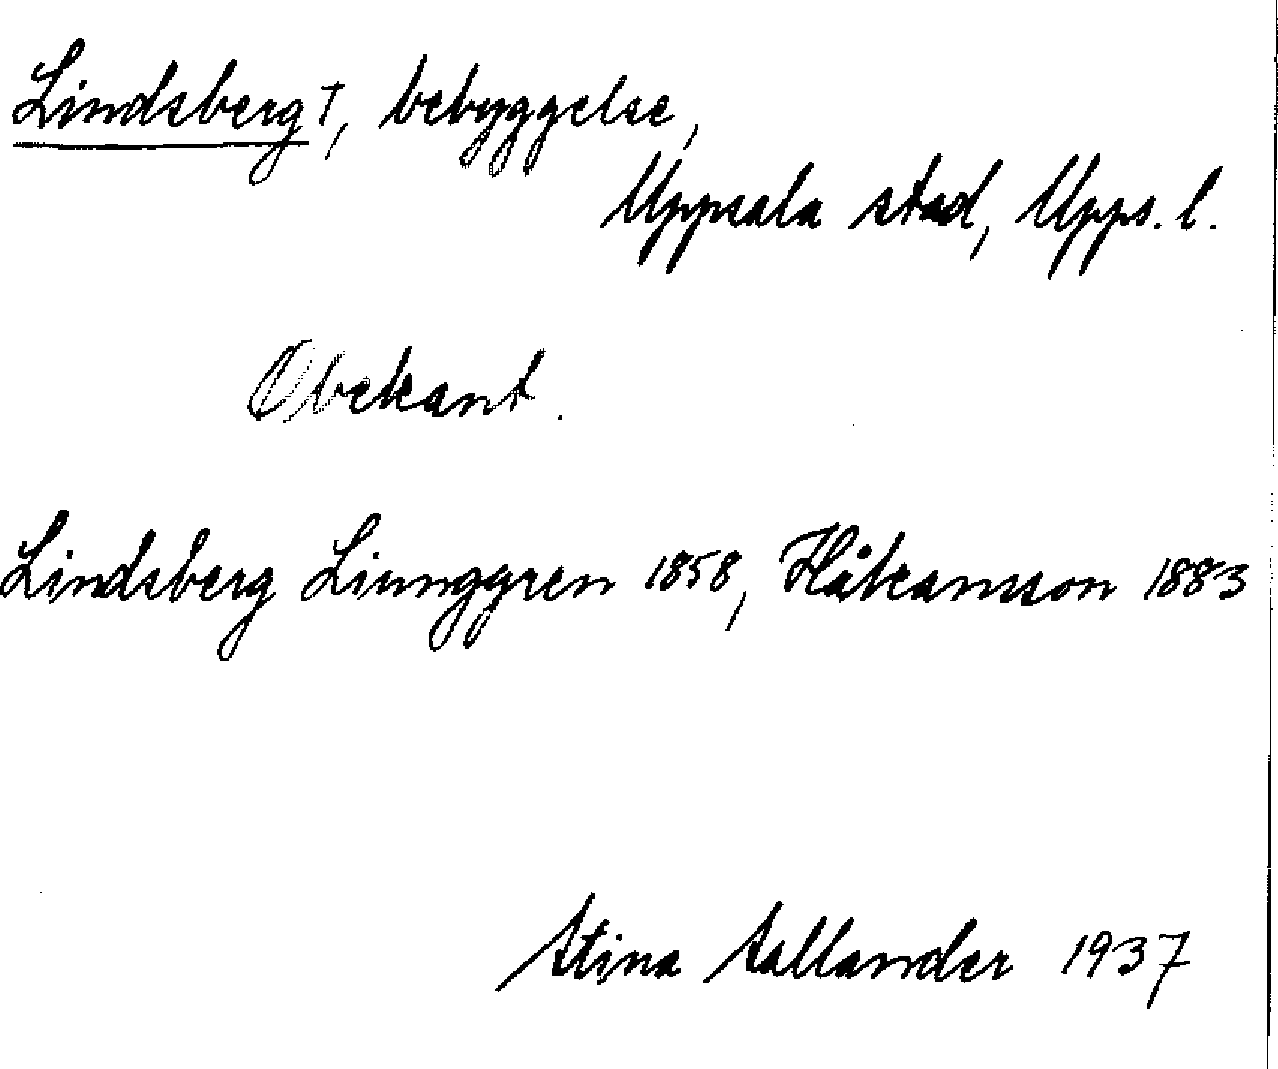 Lindsberg †, bebyggelse,
Uppsala stad, Upps. l.
Obekant.
Lindsberg Liunggren 1858, Håkansson 1883
Stina Sallander 1937